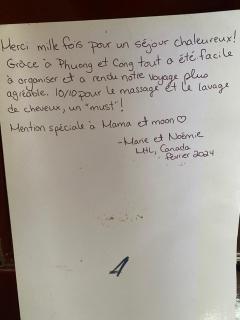 Merci mille fois pour un séjour chaleureux!
Grâce à Phuong et Cong tout a été facile
à organiser et a rendu notre voyage plus
agréable. 10/10 pour le massage et le lavage
de cheveux, un "must"!
Mention spéciale à Mama et moon ♡
-Marie et Noémie
LHL, Canada
février 2024
1